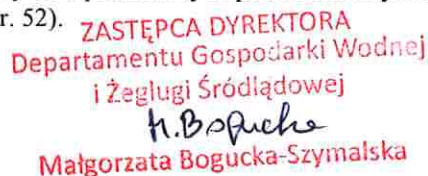 r. 52).
ZASTĘPCA DYREKTORA
Departamentu Gospodarki Wodnej
i Żeglugi Śródlądowej
M. Bogucka
Małgorzata Bogucka-Szymalska